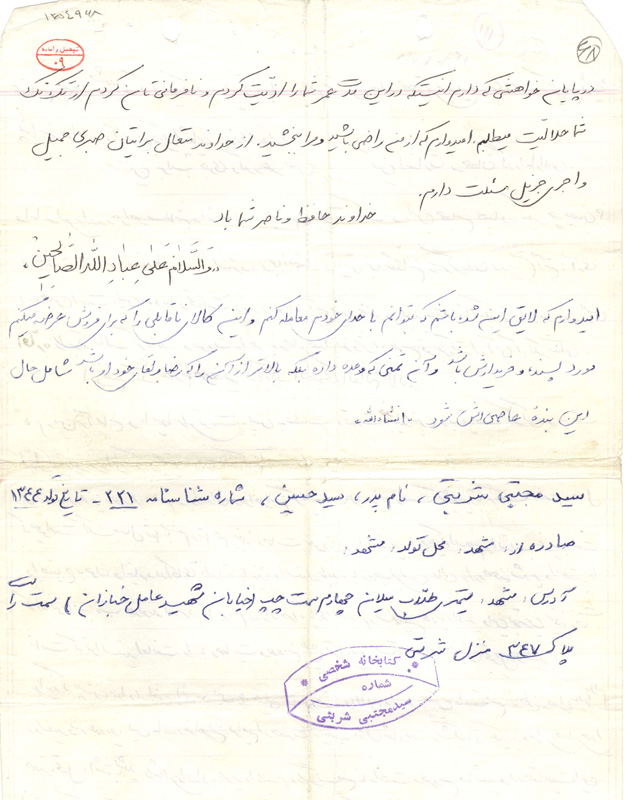 ۱۲۵۴۹۶۸
۶۸
۰۹
در پایان خواهشی که دارم اینست که در این مدت عمر شما را اذیت کردم و نافرمانی تان کردم از تک تک
شما حلالیت میطلبم. امیدوارم که از من راضی باشید و مرا ببخشید. از خداوند متعال برایتان صبری جمیل
و اجری جزیل مسئلت دارم.
خداوند حافظ و ناصر شما باد
والسلام علی عباد الله الصالحین
امیدوارم که لایق این شده باشم که بتوانم با خدای خودم معامله کنم و این کالای ناقابلی را که برای فروش عرضه میکنم
مورد پسند و خریدارش باشد و آن ثمنی که وعده داده بلکه بالاتر از آن را که رضا و لقای خود او باشد شامل حال
این بنده عاصی اش شود. انشاءالله.
سید مجتبی شربتی، نام پدر، سید حسین، شماره شناسنامه ۲۲۱ - تاریخ تولد ۱۳۴۴
صادره از: مشهد، محل تولد: مشهد،
آدرس: مشهد، طلاب میلان چهارم سمت چپ (خیابان شهید عامل خبازان) سمت راست
پلاک ۳۴۷ منزل شربتی
کتابخانه شخصی
شماره
سیدمجتبی شربتی